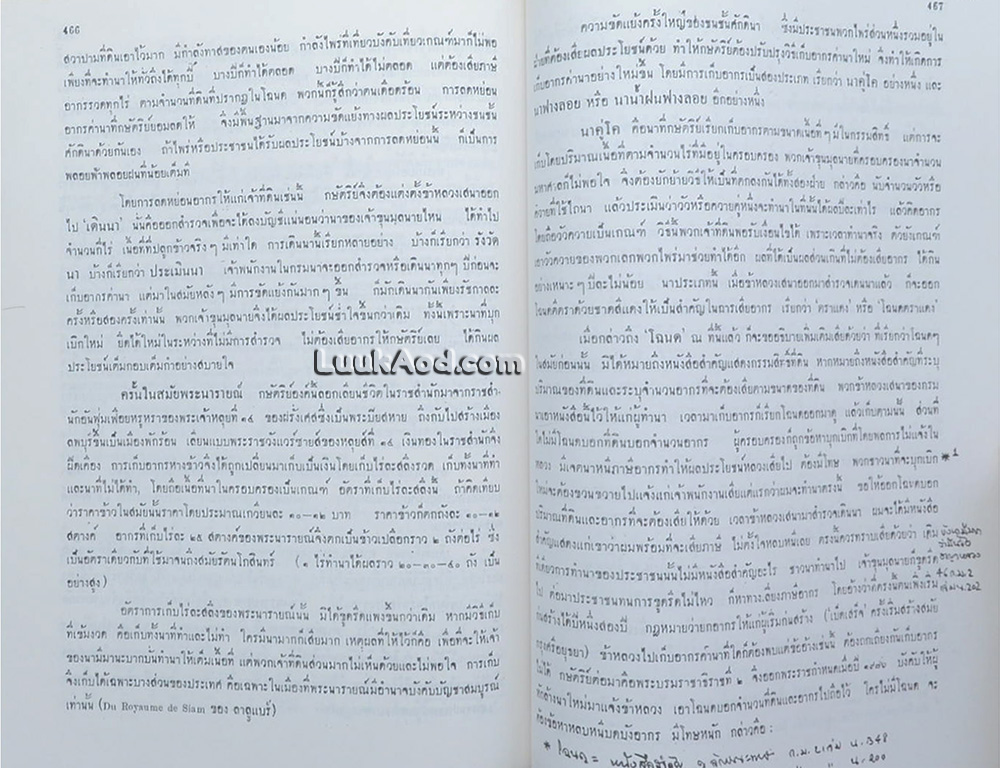 466
สวาปามที่ดินเอาไว้มาก มีกำลังทาสของตนเองน้อย กำลังไพร่ที่เที่ยวบังคับเที่ยวเกณฑ์มาก็ไม่พอ
เพียงที่จะทำนาให้ทั่วถึงได้ทุกปี บางปีก็ทำได้ตลอด บางปีก็ทำได้ไม่ตลอด แต่ต้องเสียภาษี
อากรรวดทุกไร่ ตามจำนวนที่ดินที่ปรากฏในโฉนด พวกนี้ก็รู้สึกว่าตนเดือดร้อน การลดหย่อน
อากรค่านาที่กษัตริย์ยอมลดให้ จึงมีพื้นฐานมาจากความขัดแย้งทางผลประโยชน์ระหว่างชนชั้น
ศักดินาด้วยกันเอง ถ้าไพร่หรือประชาชนได้รับผลประโยชน์บ้างจากการลดหย่อนนี้ ก็เป็นการ
พลอยฟ้าพลอยฝนที่น้อยเต็มที
โดยการลดหย่อนอากรให้แก่เจ้าที่ดินเช่นนี้ กษัตริย์จึงต้องแต่งตั้งข้าหลวงเสนาออก
ไป 'เดินนา' นั่นคือออกสำรวจเพื่อจะได้ลงบัญชีแน่นอนว่านาของเจ้าขุนมูลนายไหน ได้ทำไป
จำนวนกี่ไร่ เนื้อที่ที่ปลูกข้าวจริงๆ มีเท่าใด การเดินนานี้เรียกหลายอย่าง บ้างก็เรียกว่า รังวัด
นา บ้างก็เรียกว่า ประเมินนา เจ้าพนักงานในกรมนาจะออกสำรวจหรือเดินนาทุกๆ ปีก่อนจะ
เก็บอากรค่านา แต่มาในสมัยหลังๆ มีการขัดแย้งกันมากๆ ขึ้น ก็มักเดินนากันเพียงรัชกาลละ
ครั้งหรือสองครั้งเท่านั้น พวกเจ้าขุนมูลนายจึงได้ผลประโยชน์ช้ำใจขึ้นกว่าเดิม ทั้งนี้เพราะนาที่บุก
เบิกใหม่ ยึดได้ใหม่ในระหว่างที่ไม่มีการสำรวจ ไม่ต้องเสียอากรให้กษัตริย์เลย ได้กินผล
ประโยชน์เต็มกอบเต็มกำอย่างสบายใจ
LuukAod.com
ครั้นในสมัยพระนารายณ์ กษัตริย์องค์นี้ลอกเลียนชีวิตในราชสำนักมาจากราชสำ-
นักอันฟุ่มเฟือยหรูหราของพระเจ้าหลุยที่ ๑๔ ของฝรั่งเศสซึ่งเป็นพระปีสหาย ถึงกับไปสร้างเมือง
ลพบุรีขึ้นเป็นเมืองพักร้อน เลียนแบบพระราชวังแวร์ซายส์ของหลุยส์ที่ ๑๔ เงินทองในราชสำนักจึง
ฝืดเคือง การเก็บอากรหางข้าวจึงได้ถูกเปลี่ยนมาเก็บเป็นเงินโดยเก็บไร่ละสลึงรวด เก็บทั้งนาที่ทำ
และนาที่ไม่ได้ทำ, โดยถือเนื้อที่นาในครอบครองเป็นเกณฑ์ อัตราที่เก็บไร่ละสลึงนี้ ถ้าคิดเทียบ
ว่าราคาข้าวในสมัยนั้นราคาโดยประมาณเกวียนละ ๑๐-๑๒ บาท ราคาข้าวก็ตกถังละ ๑๐-๑๒
สตางค์ อากรที่เก็บไร่ละ ๒๕ สตางค์ของพระนารายณ์นี้จึงตกเป็นข้าวเปลือกราว ๒ ถังต่อไร่ ซึ่ง
เป็นอัตราเดียวกับที่ใช้มาจนถึงสมัยรัตนโกสินทร์ (๑ ไร่ทำนาได้ผลราว ๒๐-๓๐-๔๐ ถัง เป็น
อย่างสูง)
อัตราการเก็บไร่ละสลึงของพระนารายณ์นั้น มิได้ขูดรีดแพงขึ้นกว่าเดิม หากมีวิธีเก็บ
ที่เข้มงวด คือเก็บทั้งนาที่ทำและไม่ทำ ใครมีนามากก็เสียมาก เหตุผลที่ให้ไว้ก็คือ เพื่อที่จะให้เจ้า
ของนามีมานะบากบั่นทำนาให้เต็มเนื้อที่ แต่พวกเจ้าที่ดินส่วนมากไม่เห็นด้วยและไม่พอใจ การเก็บ
จึงเก็บได้เฉพาะบางส่วนของประเทศ คือเฉพาะในเมืองที่พระนารายณ์มีอำนาจบังคับบัญชาสมบูรณ์
เท่านั้น (Du Royaume de Siam ของ ลาลูแบร์)
467
ความขัดแย้งครั้งใหญ่ของชนชั้นศักดินา ซึ่งมีประชาชนพวกไพร่ส่วนหนึ่งรวมอยู่ใน
ฝ่ายที่ต้องเสียผลประโยชน์ด้วย ทำให้กษัตริย์ต้องปรับปรุงวิธีเก็บอากรค่านาใหม่ จึงทำให้เกิดการ
เก็บอากรค่านาอย่างใหม่ขึ้น โดยมีการเก็บอากรเป็นสองประเภท เรียกว่า นาคู่โค อย่างหนึ่ง และ
นาฟางลอย หรือ นาน้ำฝนฟางลอย อีกอย่างหนึ่ง
นาคู่โค คือนาที่กษัตริย์เรียกเก็บอากรตามขนาดเนื้อที่ๆ มีในกรรมสิทธิ์ แต่การจะ
เก็บโดยปริมาณเนื้อที่ตามจำนวนไร่ที่มีอยู่ในครอบครอง พวกเจ้าขุนมูลนายที่ครอบครองนาจำนวน
มหาศาลก็ไม่พอใจ จึงต้องยักย้ายวิธีให้เป็นที่ตกลงกันได้ทั้งสองฝ่าย กล่าวคือ นับจำนวนวัวหรือ
ควายที่ใช้ไถนา แล้วประเมินว่าวัวหรือควายคู่หนึ่งจะทำนาในที่นั้นได้ผลปีละเท่าไร แล้วคิดอากร
โดยถือวัวควายเป็นเกณฑ์ วิธีนี้พวกเจ้าที่ดินพอรับเงื่อนไขได้ เพราะเวลาทำนาจริง ตัวยังเกณฑ์
เอาวัวควายของพวกเลกพวกไพร่มาช่วยทำได้อีก ผลที่ได้เป็นผลส่วนเกินที่ไม่ต้องเสียอากร ได้กิน
อย่างเหนาะๆ ปีละไม่น้อย นาประเภทนี้ เมื่อข้าหลวงเสนาออกมาสำรวจเดินนาแล้ว ก็จะออก
โฉนดตีตราด้วยชาดสีแดงให้เป็นสำคัญในการเสียอากร เรียกว่า 'ตราแดง' หรือ 'โฉนดตราแดง'
เมื่อกล่าวถึง 'โฉนด' ณ ที่นี้แล้ว ก็จะขออธิบายเพิ่มเติมเสียด้วยว่า ที่เรียกว่าโฉนดๆ
ในสมัยก่อนนั้น มิได้หมายถึงหนังสือสำคัญแสดงกรรมสิทธิ์ที่ดิน หากหมายถึงหนังสือสำคัญที่ระบุ
ปริมาณของที่ดินและระบุจำนวนอากรที่จะต้องเสียตามขนาดของที่ดิน พวกข้าหลวงเสนาของกรม
นาเอาหนังสือนี้ไว้ให้แก่ผู้ทำนา เวลามาเก็บอากรก็เรียกโฉนดออกมาดู แล้วเก็บตามนั้น ส่วนที่
ใดไม่มีโฉนดบอกที่ดินบอกจำนวนอากร ผู้ครอบครองก็ถูกข้อหาบุกเบิกที่โดยพลการไม่แจ้งใน
หลวง มีเจตนาหนีภาษีอากรทำให้ผลประโยชน์หลวงเสียไป ต้องมีโทษ พวกชาวนาที่จะบุกเบิก *1
ใหม่จะต้องขวนขวายไปแจ้งแก่เจ้าพนักงานเสียแต่แรกว่าผมจะทำนาตรงนี้ ขอให้ออกโฉนดบอก
ปริมาณที่ดินและอากรที่จะต้องเสียให้ด้วย เวลาข้าหลวงเสนามาสำรวจเดินนา ผมจะได้มีหนังสือ
สำคัญแสดงแก่เขาว่าผมพร้อมที่จะเสียภาษี ไม่ตั้งใจหลบหนีเลย ตรงนี้ควรทราบเสียด้วยว่า เดิม
ทีเดียวการทำนาของประชาชนนั้นไม่มีหนังสือสำคัญอะไร ชาวนาทำนาไป เจ้าขุนมูลนายก็ขูดรีด
ไป ต่อมาประชาชนทนการขูดรีดไม่ไหว ก็หาทางเลี่ยงภาษีอากร โดยอ้างว่าที่ตรงนี้ตนเพิ่งเริ่ม
ก่นสร้างได้ปีหนึ่งสองปี กฎหมายว่ายกอากรให้แก่ผู้เริ่มก่นสร้าง ('เบ็ดเสร็จ' ครั้งเริ่มสร้างสมัย
กรุงศรีอยุธยา) ข้าหลวงไปเก็บอากรค่านาที่ใดก็ต้องพบแต่ข้ออ้างเช่นนี้ ต้องถกเถียงกันเก็บอากร
ไม่ได้ กษัตริย์ต่อมาคือพระบรมราชาธิราชที่ ๒ จึงออกพระราชกำหนดเมื่อปี ๑๙๘๖ บังคับให้ผู้
หักล้างนาใหม่มาแจ้งข้าหลวง เอาโฉนดบอกจำนวนที่ดินและอากรไปถือไว้ ใครไม่มีโฉนด จะ
ต้องข้อหาหลบหนีบดบังอากร มีโทษหนัก กล่าวคือ:
* โฉนด = หนังสือสำคัญ